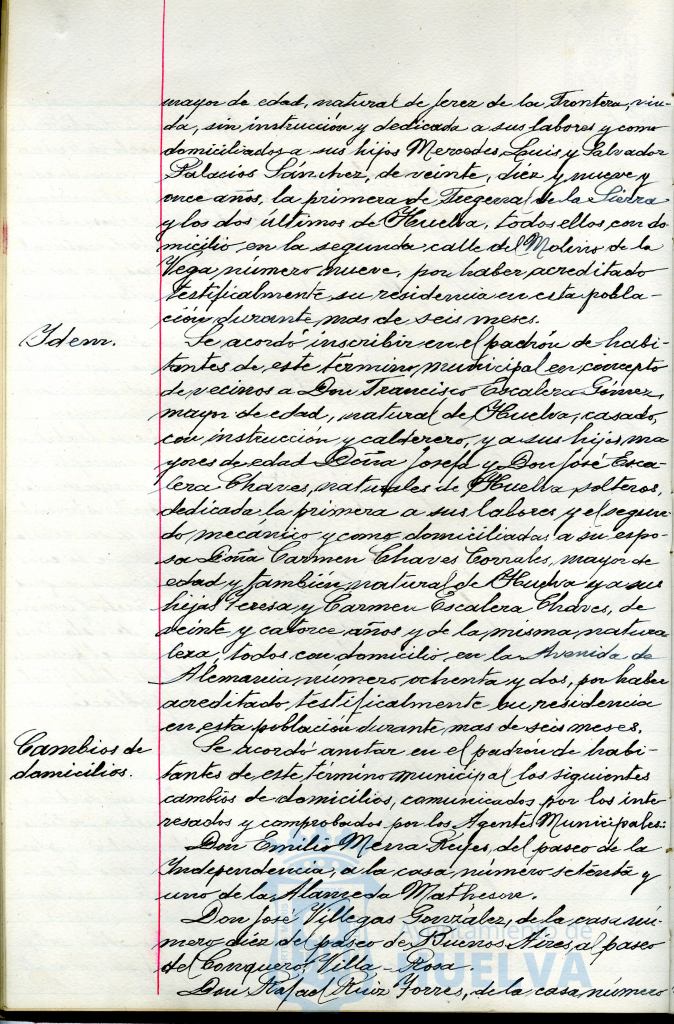 mayor de edad, natural de Jerez de la Frontera, viu-
da, sin instrucción y dedicada a sus labores y como
domiciliados a sus hijos Mercedes, Luis y Salvador
Palacios Sánchez, de veinte, diez y nueve y
once años, la primera de de la Sierra
y los dos últimos de Huelva, todos ellos con do
micilio en la segunda calle del Molino de la
Vega, número nueve, por haber acreditado
testificalmente su residencia en esta pobla-
ción durante mas de seis meses.
Idem.
Se acordó inscribir en el padrón de habi-
tantes de este término municipal en concepto
de vecinos a Don Francisco Escalera Gómez,
mayor de edad, natural de Huelva, casado,
con instrucción y calderero, y a sus hijos ma
yores de edad Doña Josefa y Don José Esca-
lera Chaves, naturales de Huelva solteros,
dedicada la primera a sus labores y el segun-
do mecánico y como domiciliadas a su espo-
sa Doña Carmen Chaves Corrales, mayor de
edad y también natural de Huelva y a sus
hijas Teresa y Carmen Escalera Chaves, de
veinte y catorce años y de la misma natura
leza, todos con domicilio en la Avenida de
Alemania número ochenta y dos, por haber
acreditado testificalmente su residencia
en esta población durante mas de seis meses.
Cambios de
domicilios.
Se acordó anotar en el padrón de habi-
tantes de este término municipal los siguientes
cambios de domicilios, comunicados por los inte
resados y comprobados por los Agentes Municipales:
Don Emilio Mena Reyes, del paseo de la
Independencia, a la casa número setenta y
uno de la Alameda Matheson.
Don José Villegas González, de la casa nú-
mero diez del paseo de Buenos Aires, al paseo
del Conquero, Villa-Rosa.
Don Rafael Ruiz Torres, de la casa número
Ayuntamiento de
HUELVA